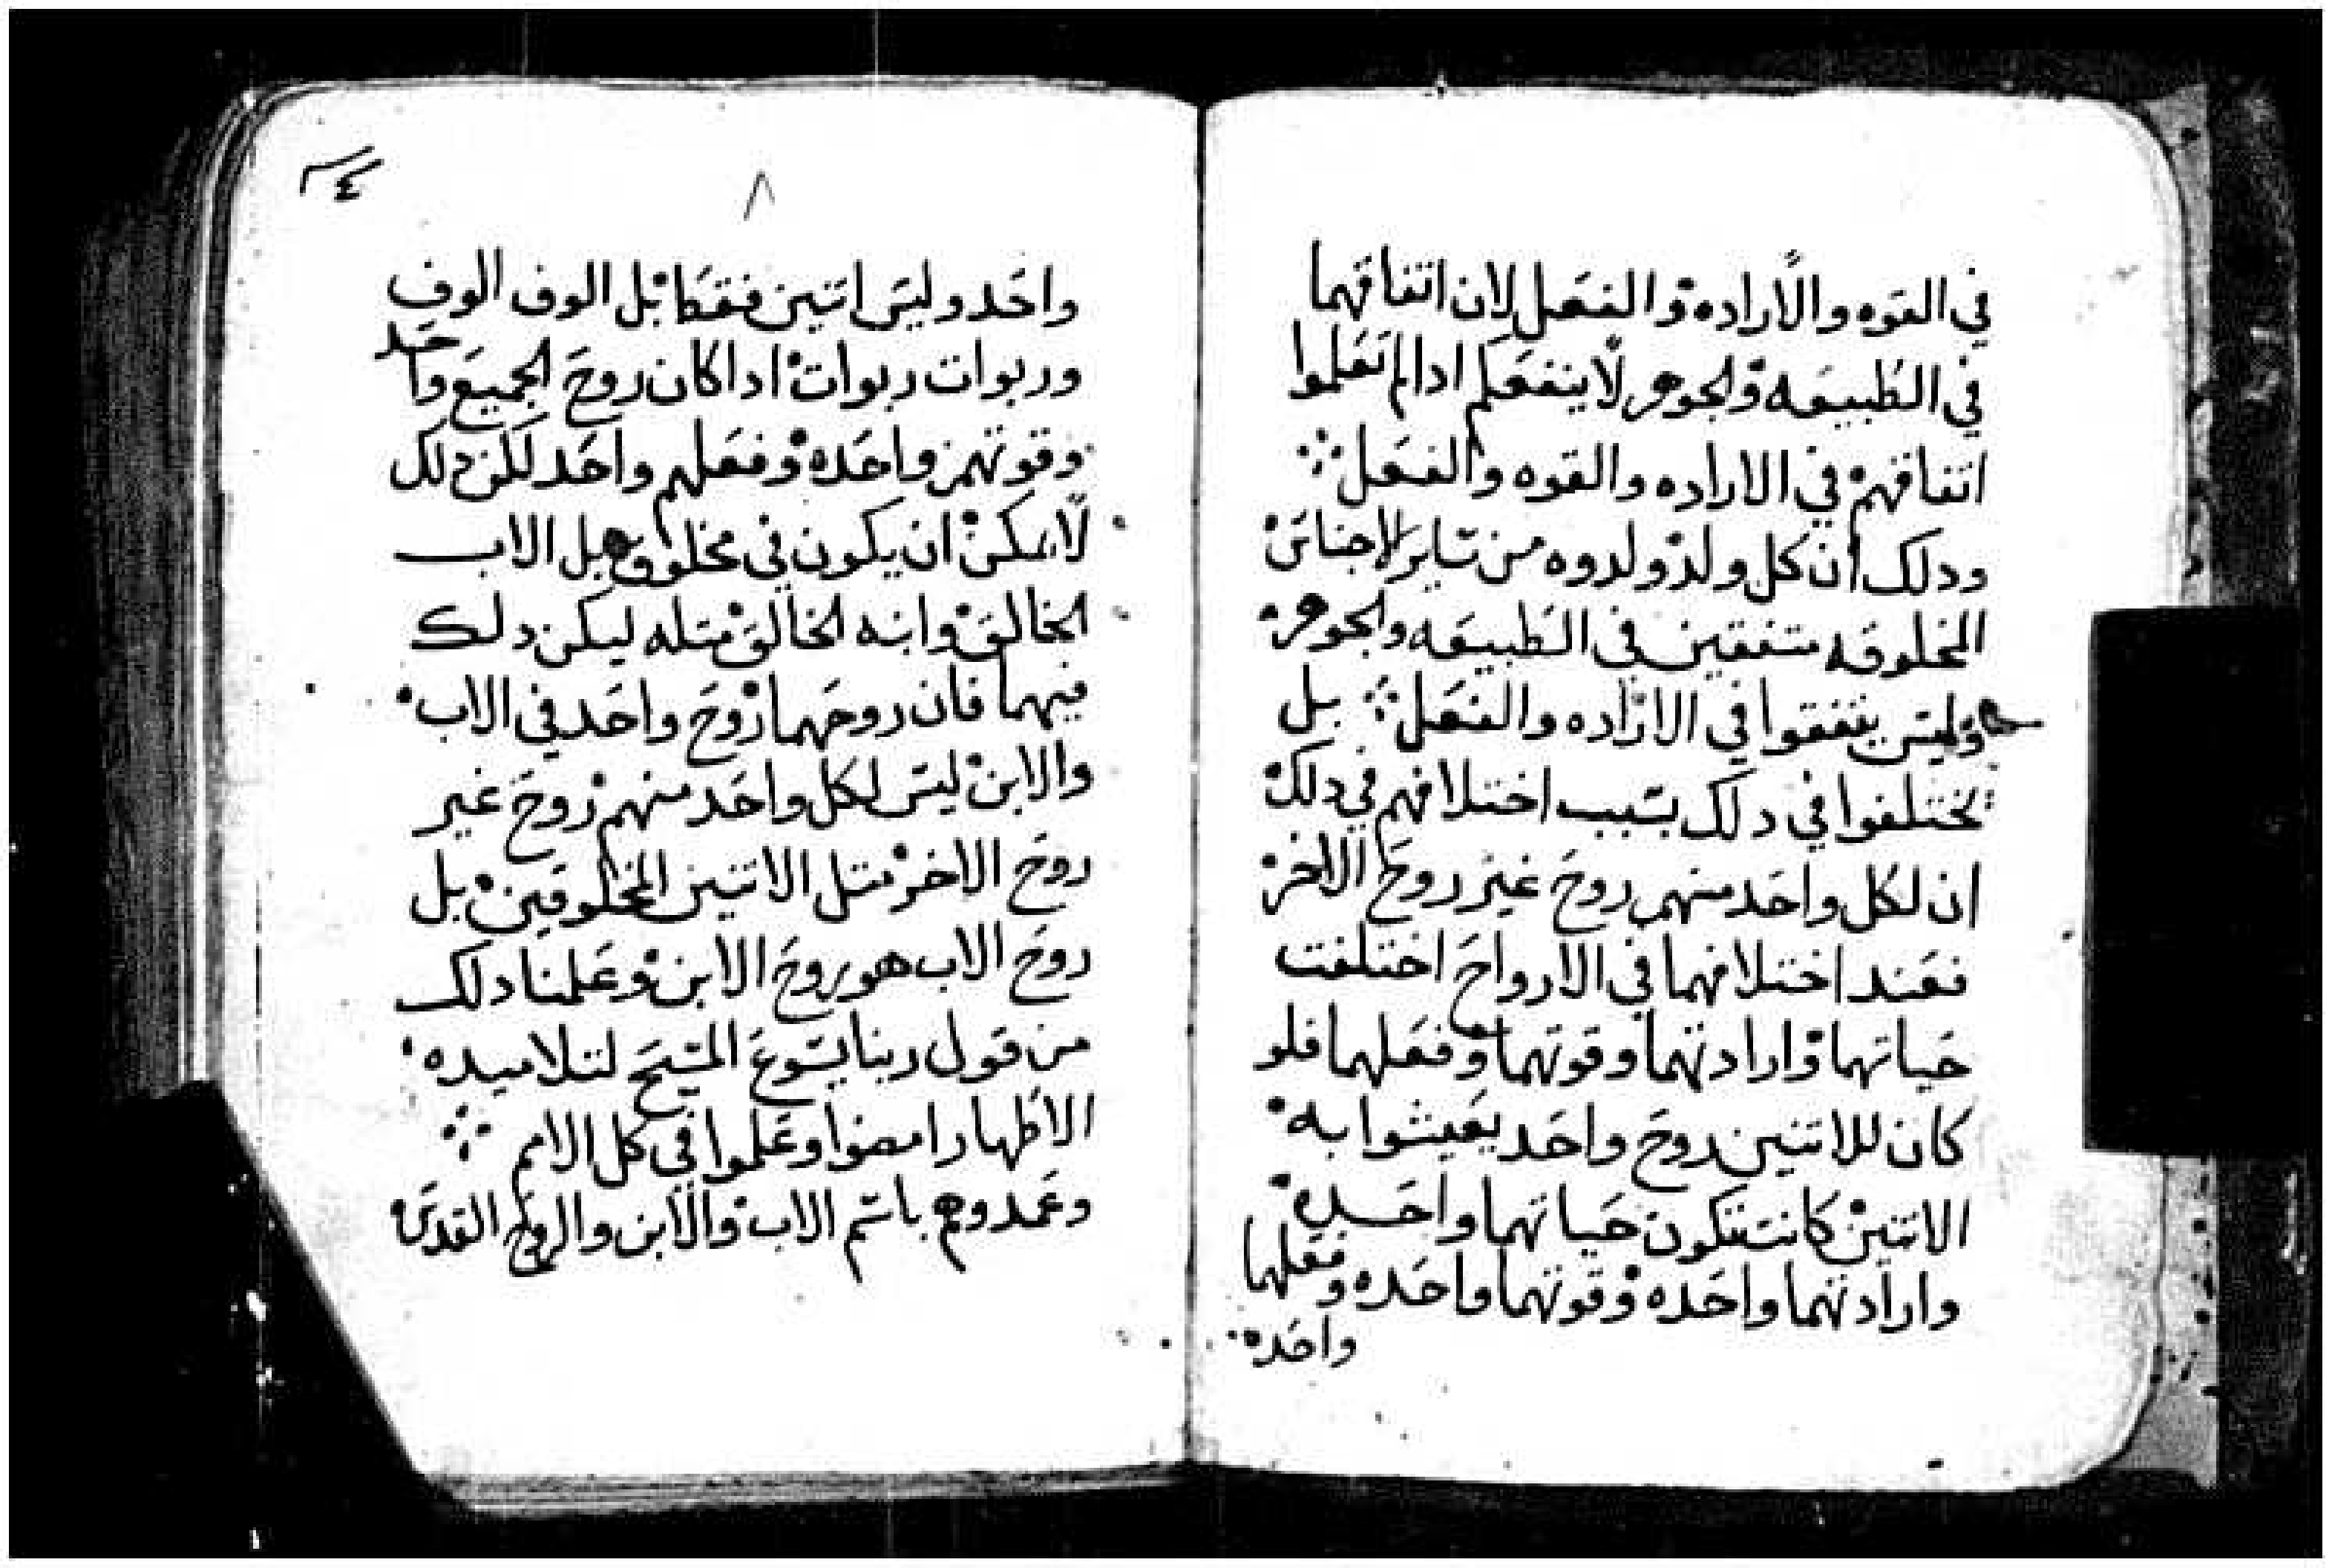 في القوه والاراده والفعل لان اتفاقهما
في الطبيعه والجوهر لا ينفعكم ادا لم تعلموا
اتفاقهم في الاراده والقوه والفعل
ودلك ان كل ولد ولدوه من ساير الاجناس
المخلوقه متفقين في الطبيعه والجوهر
وليس يتفقوا في الاراده والفعل بل
يختلفوا في دلك بسبب اختلافهم في دلك
ان لكل واحد منهم روح غير روح الاخر
فعند اختلافهما في الارواح اختلفت
حياتهما وارادتهما وقوتهما وفعلهما فلو
كان للاتنين روح واحد يعيشوا به
الاتنين كانت تكون حياتهما واحده
وارادتهما واحده وقوتهما واحده وفعلهما
واحد
٨
واحد وليس اتنين فقط بل الوف الوف
وربوات ربوات ادا كان روح الجميع واحد
وقوتهم واحده وفعلهم واحد لكن دلك
لا يمكن ان يكون في مخلوق بل الاب
الخالق وابنه الخالق متله ليكن دلك
فيهما فان روحهما روح واحد في الاب
والابن ليس لكل واحد منهم روح غير
روح الاخر متل الاتنين المخلوقين بل
روح الاب هو روح الابن وعلمنا دلك
من قول ربنا يسوع المسيح لتلاميده
الاطهار امضوا وعلموا في كل الامم
وعمدوهم باسم الاب والابن والروح القدس